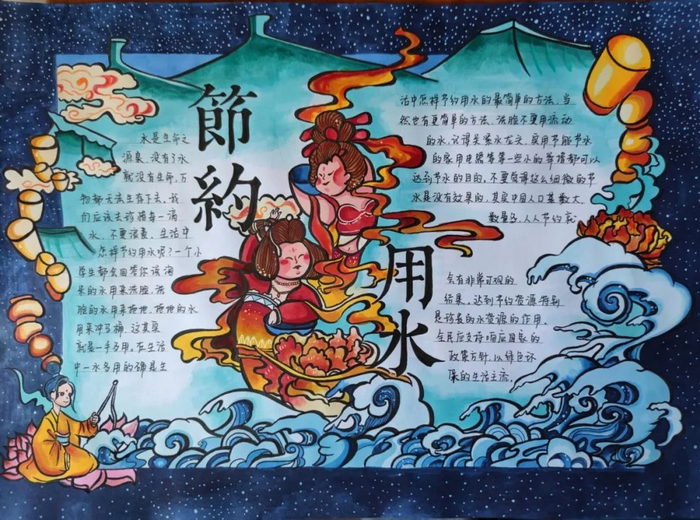 節約
用水
水是生命之
源泉，没有了水
就没有生命，万
物都无法生存下去，我
们应该去珍惜每一滴
水，不要浪费。生活中
怎样节约用水呢？一个小
学生都会回答你该淘
米的水用来洗脸，洗
脸的水用来拖地，拖地的水
用来冲马桶，这其实
就是一手多用。在生活
中一水多用的确是生
活中怎样节约用水的最简单的方法，当
然也有更简单的方法，洗脸不要用流动
的水，记得关紧水龙头，家用节能节水
的家用电器等等一些小的举措都可以
达到节水的目的，不要觉得这么细微的节
水是没有效果的，其实中国人口基数大，
数量多，人人节约就
会有非常可观的
结果，达到节约资源，特别
是珍贵的水资源的作用，
全民应支持响应国家的
政策方针，以绿色环
保的生活主流。